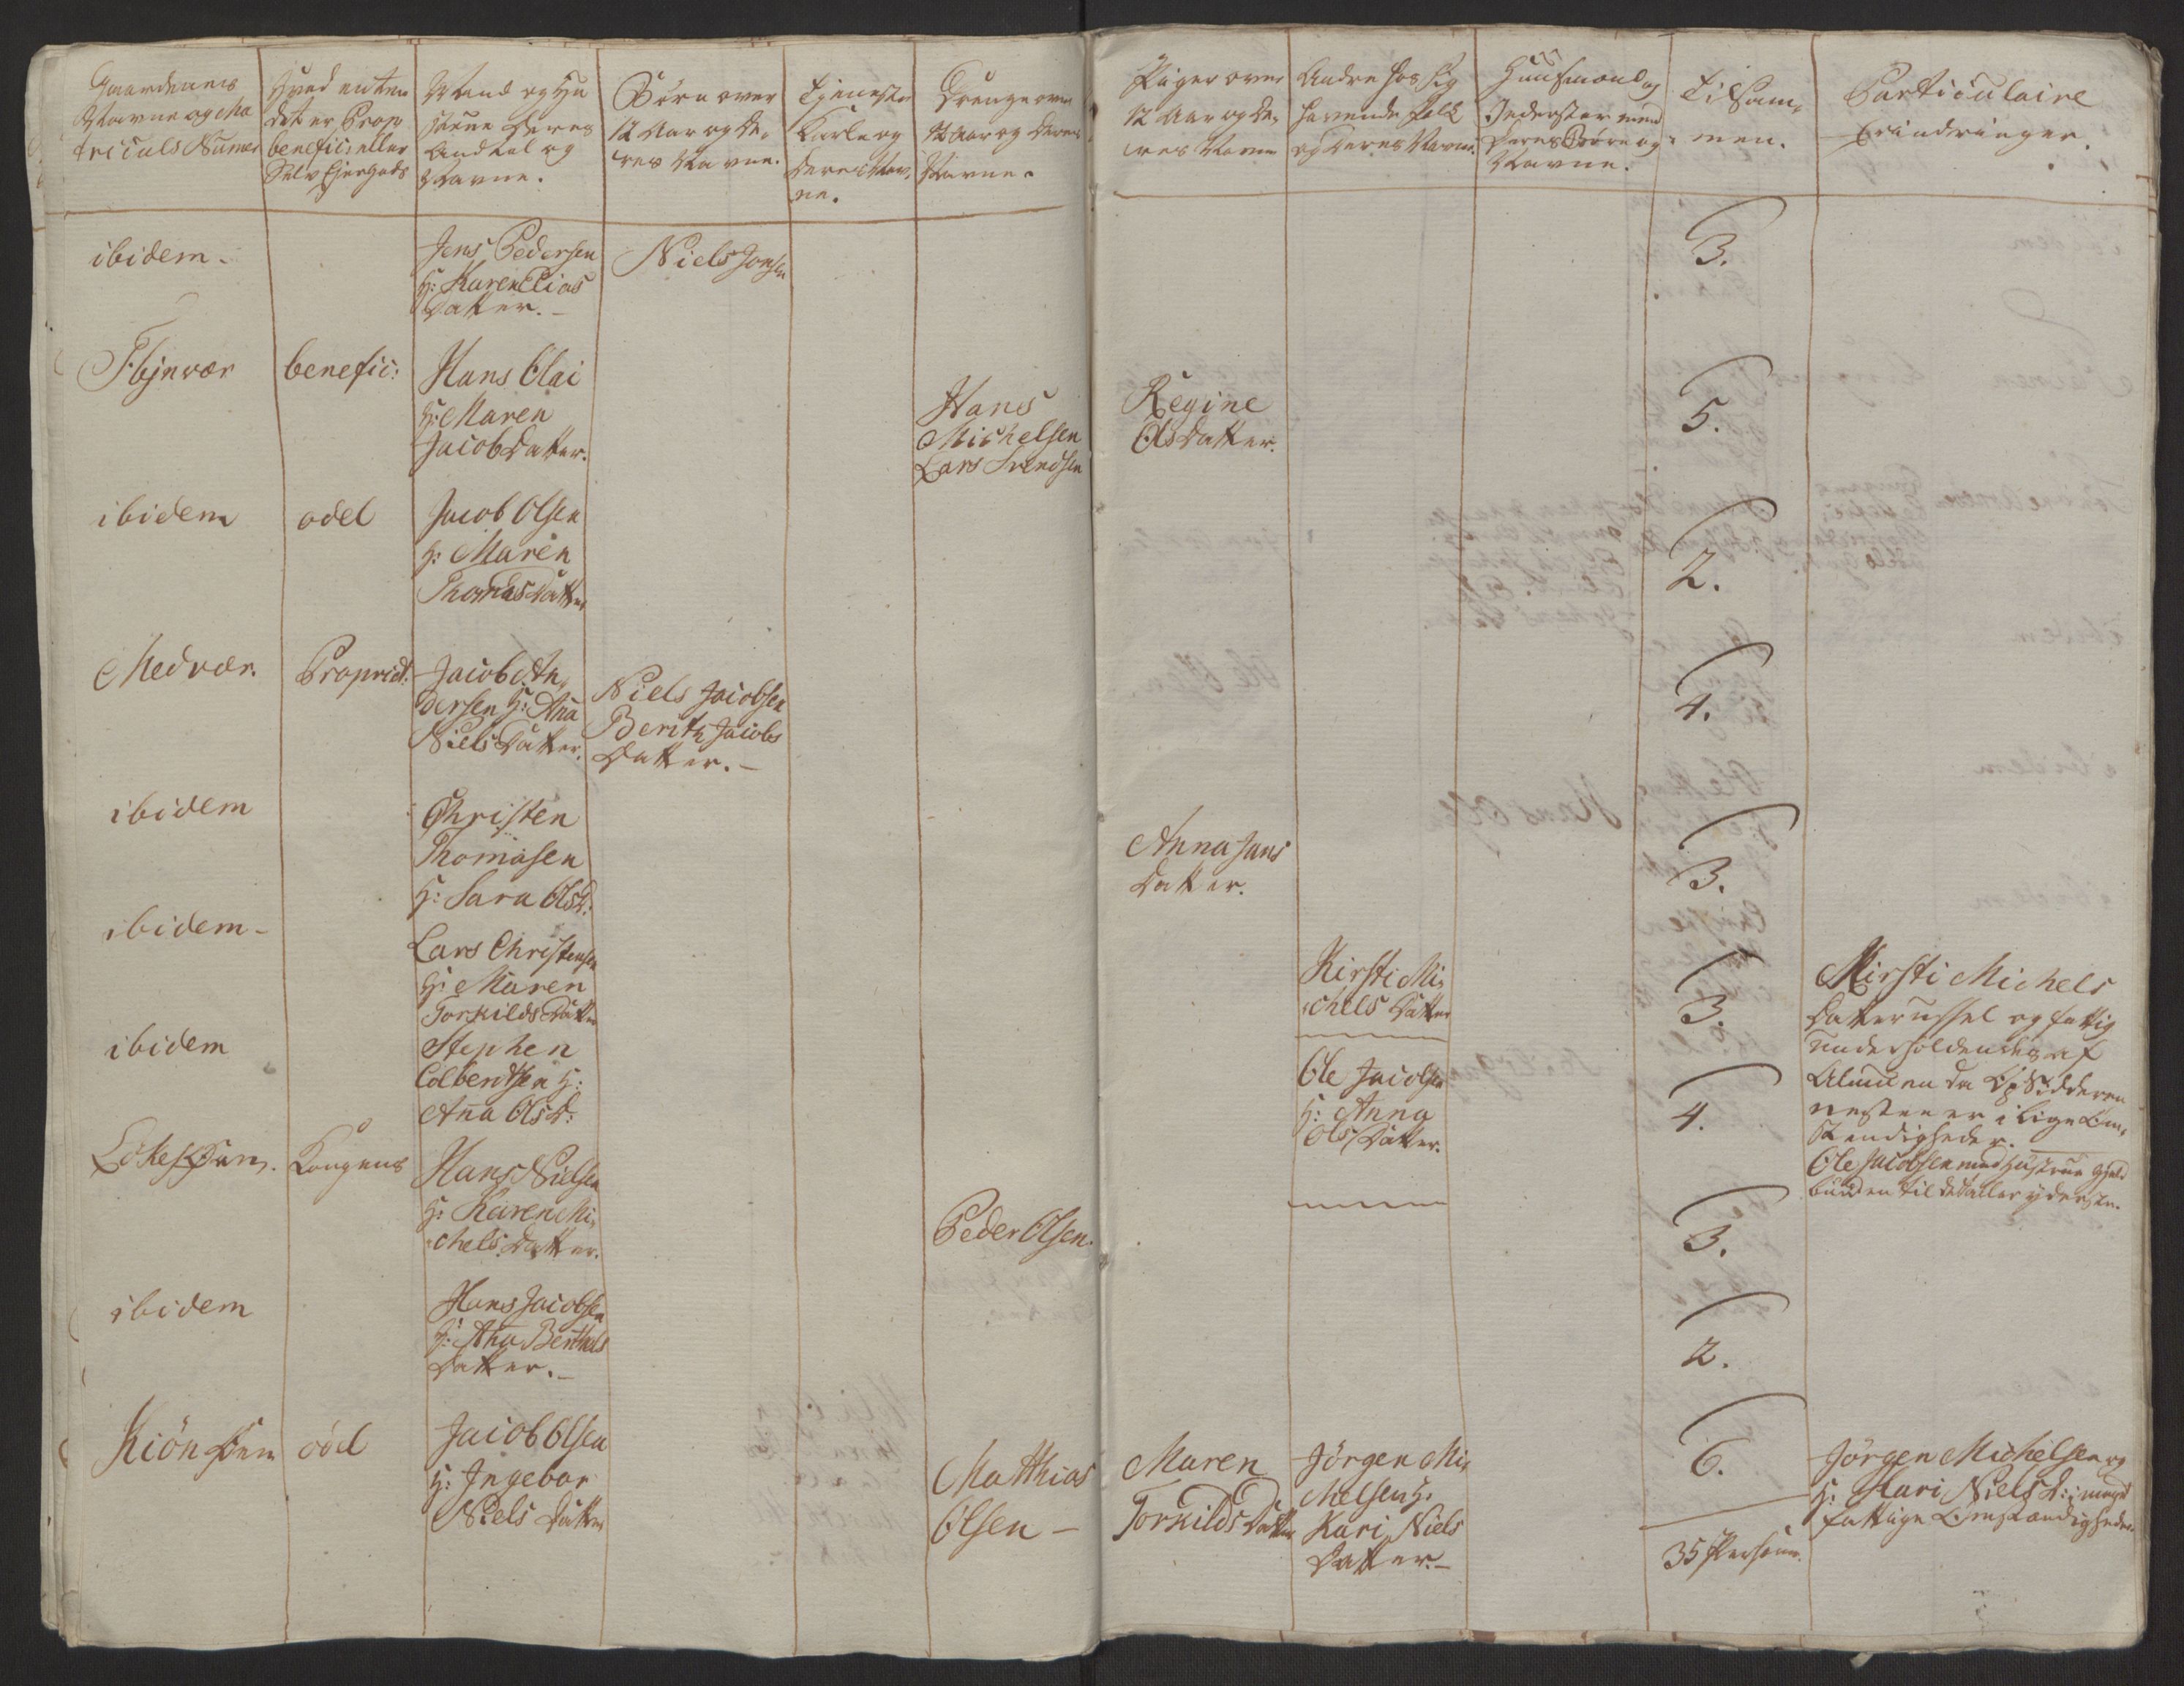 Gaardenes
Navne og Ma
triculs Numer
Hvad enten
det er Prop
benefic: eller
Selv Ejer gods
Mand og Hu
struer deres
Andtal og
Navne.
Børn over
12 Aar og de,
res Navne.
Tjeneste
Karle og
deres Nav,
ne.
Drenge over
12 Aar og deres
Navne.
Piger over
12 Aar og de,
res Navne
Andre hos sig
havende folk
og deres Navne.
Huusmænd og
Inderster med
deres Børn og
Navne.
Tilsam,
men.
Particulaire
Erindringer.
ibidem -
Jens Pedersen
H: Karen Elias
Datter. -
Niels Jensen
3.
Fløjnvær
benefic:
Hans Olai
H: Maren
Jacobdatter.
Hans
Michelsen
Lars Svendsen
Regine
Olsdatter.
5.
ibidem
odel
Jacob Olsen
H: Maren
Thomasdatter
2.
Medvær.
Propriet:
Jacob An,
dersen H: Ana
Niels Datter.
Niels Jacobsen
Berith Jacobs
Datter. -
4.
ibidem
Christen
Thomasen
H: Sara Olsd:
Anna Jans
Datter.
3.
ibidem -
Lars Christensen
H: Maren
Torkilds Datter
Kirsti Mi,
chels Datter
3.
Kirsti Michels
Datter ussel og fattig
underholdendes af
Almuen da Opsidderen
nesten er i lige Om,
stendigheder.
ibidem
Stephen
Colbentsen H:
Ana Olsd:
Ole Jacobsen
H: Anna
Ols Datter.
4.
Ole Jacobsen med Hustrue gjeld
bunden til det aller yderste.
Kongens
Hans Nielsen
H: Karen Mi,
chels Datter.
Peder Olsen.
3.
ibidem
Hans Jacobsen
H: Ana Berthels
Datter. -
2.
Kiönsøen
odel
Jacob Olsen
H: Ingebor
Niels Datter
Matthias
Olsen -
Maren
Torkilds Datter
Jørgen Mi,
chelsen H:
Kari Niels
Datter. -
6.
Jørgen Michelsen og
H: Kari Niels D: i meget
fattige Omstændigheder
35 Personer.